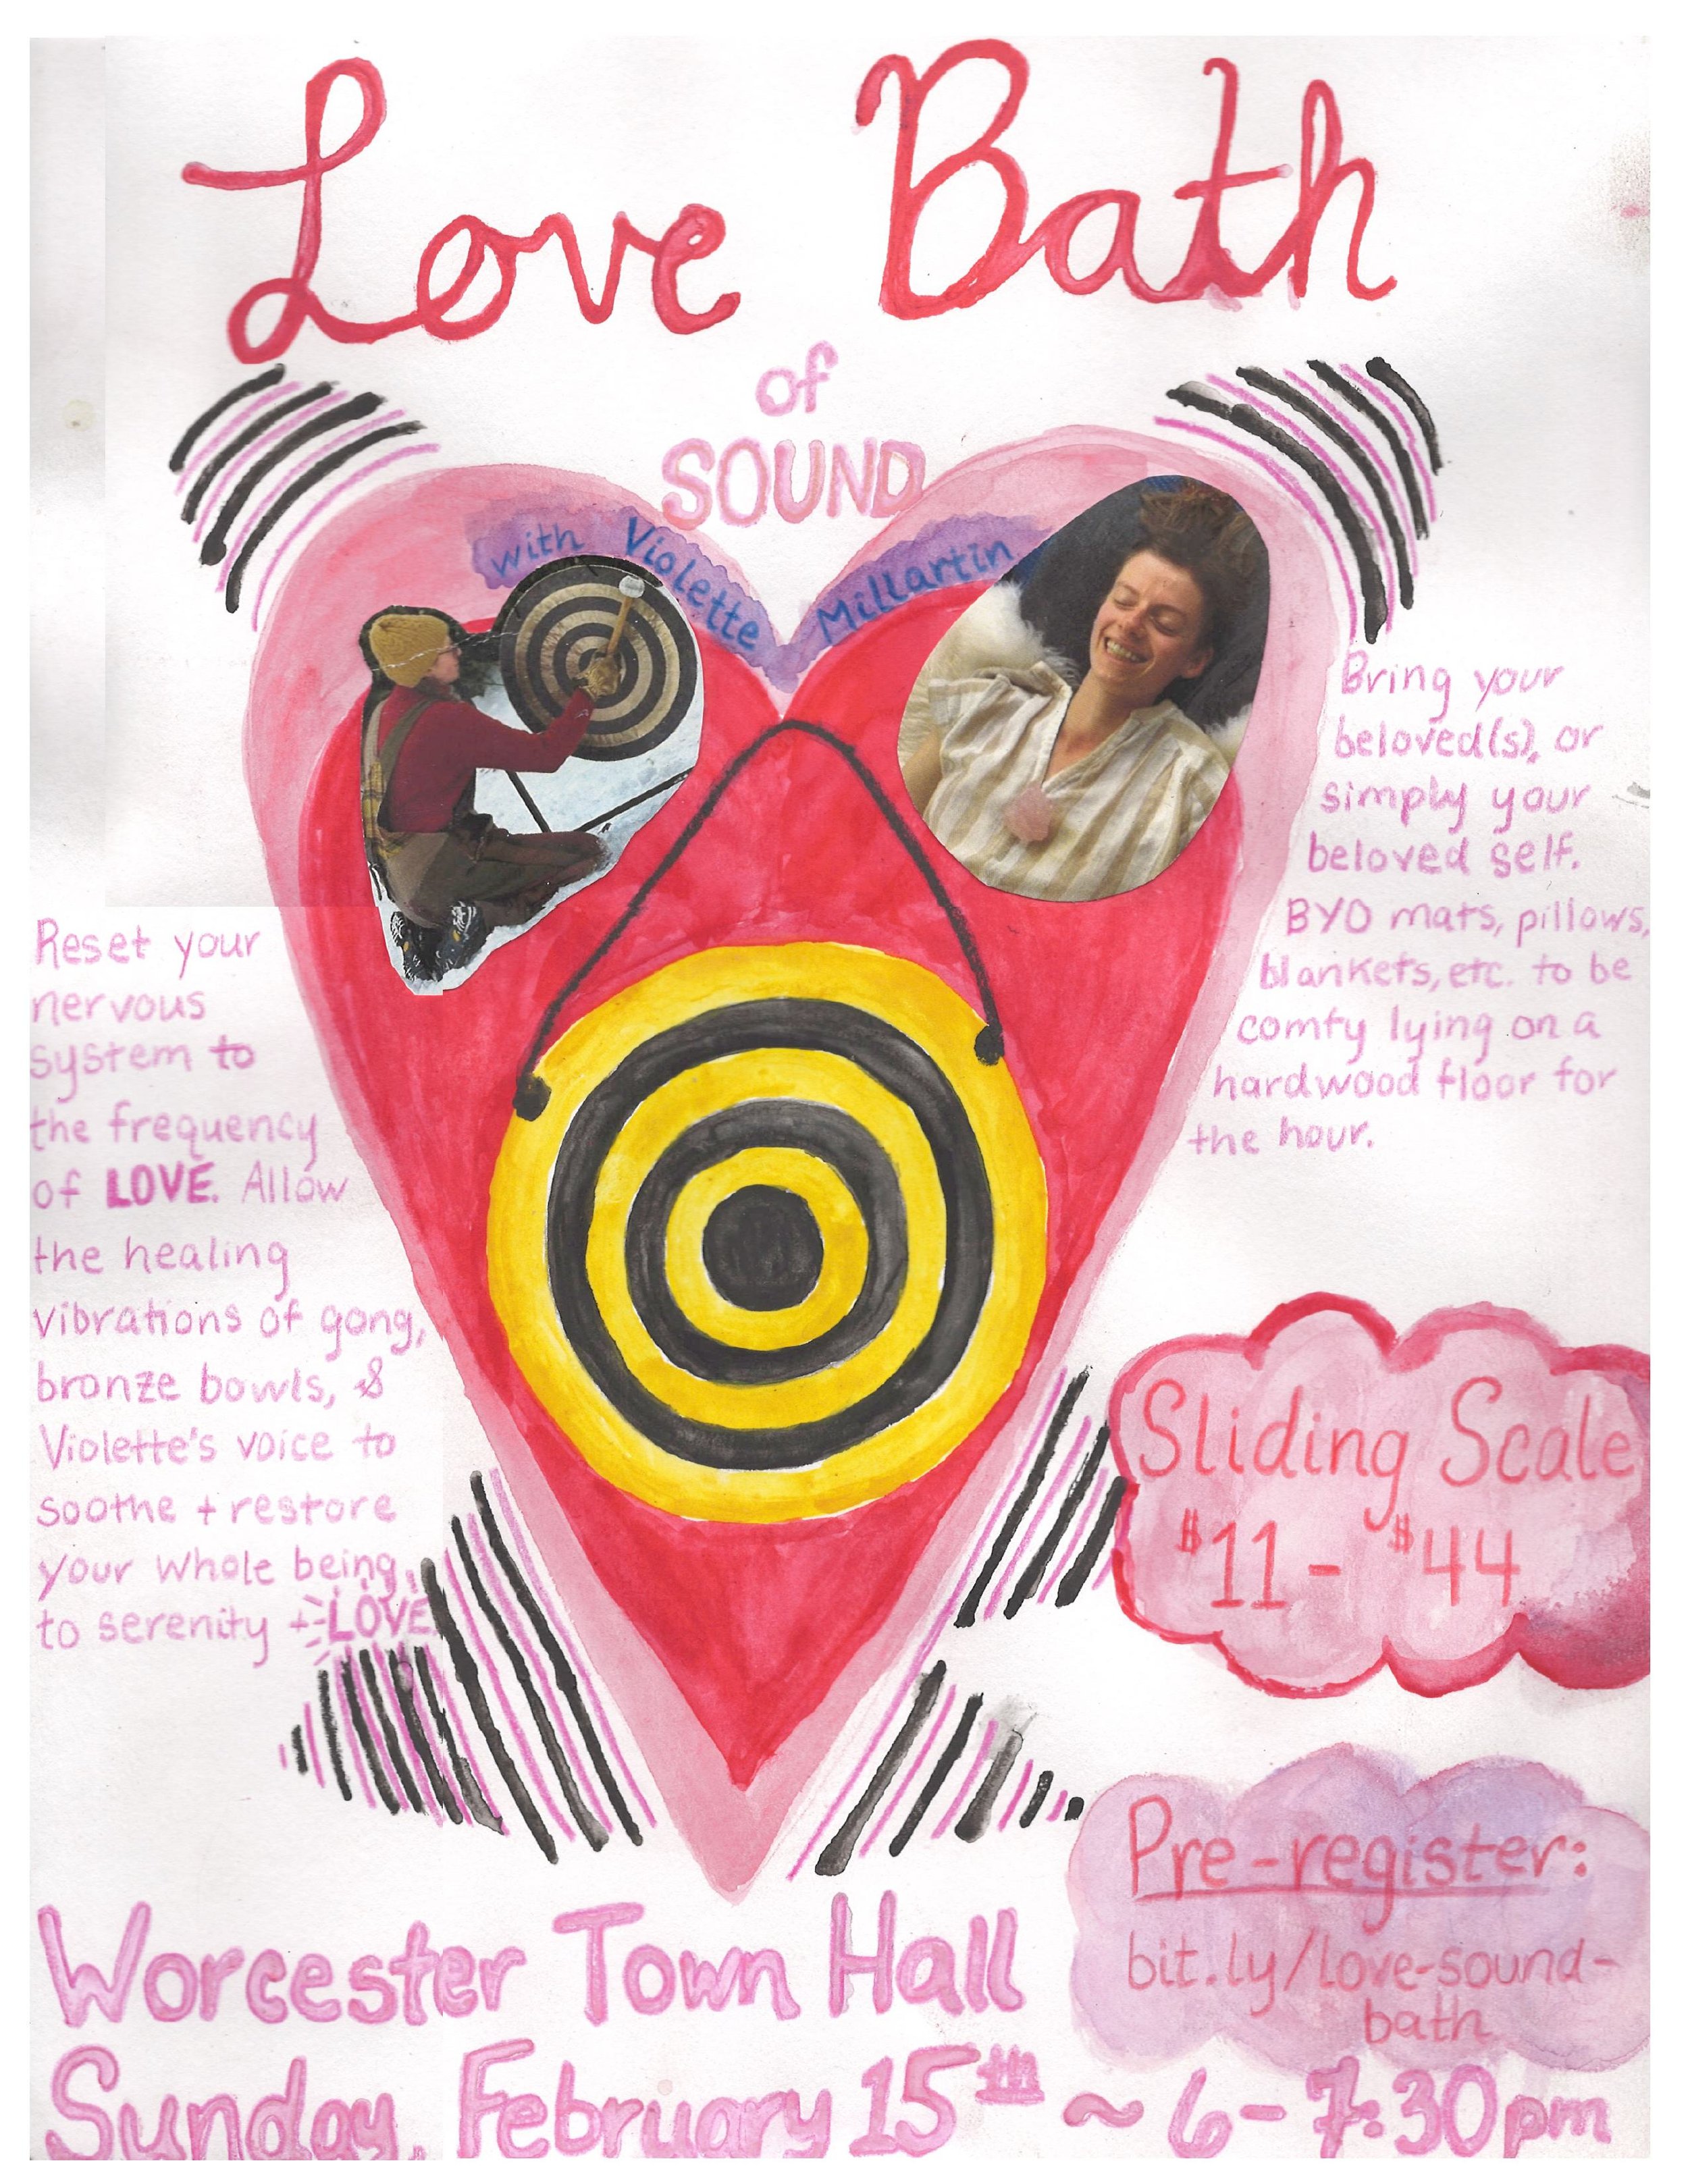 Love Bath
of
SOUND
with Violette Millartin
Bring your
beloved(s), or
simply your
beloved self.
BYO mats, pillows,
blankets, etc. to be
comfy lying on a
hardwood floor for
the hour.
Reset your
nervous
system to
the frequency
of LOVE. Allow
the healing
vibrations of gong,
bronze bowls, &
Violette's voice to
soothe + restore
your whole being,
to serenity + LOVE
Sliding Scale
$11 - $44
Pre-register:
bit.ly/love-sound-
bath
Worcester Town Hall
Sunday, February 15th ~ 6-7:30pm